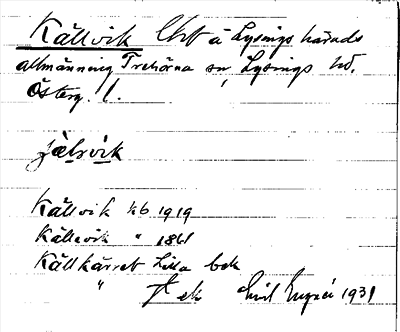 Källvik Lht å Lysings härads
allmänning Trehörna sn, Lysings hd.
Österg. l.
jälvik
Källvik kb 1919
Källevik " 1861
Källkärret Lilla bek
" ek Emil 1931